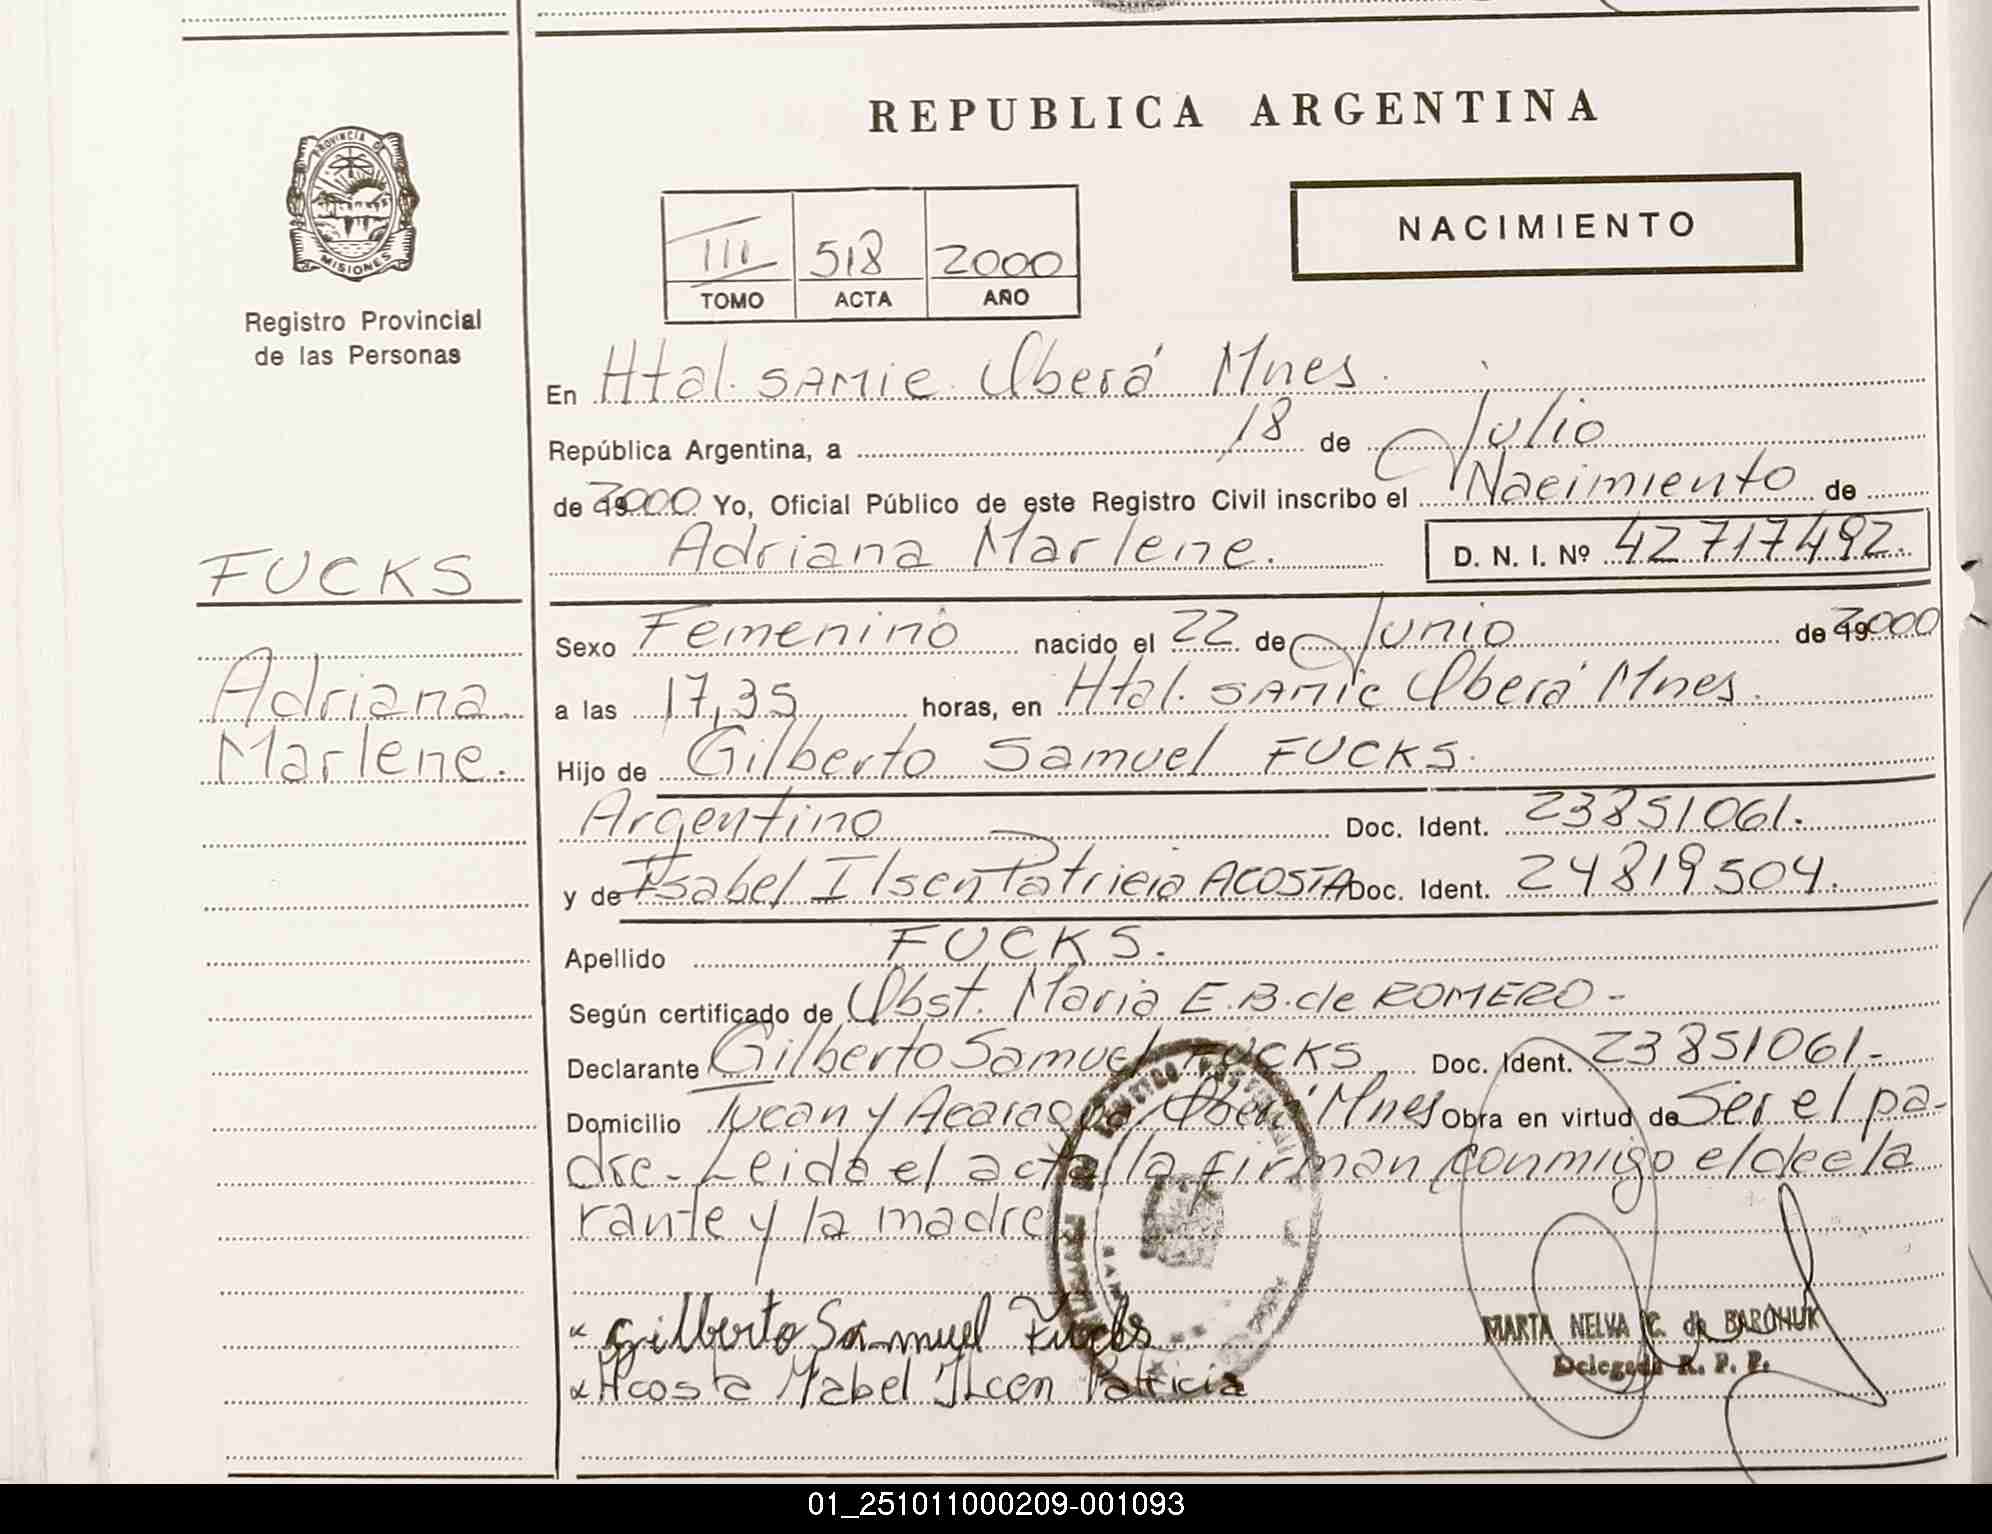 REPUBLICA ARGENTINA
PROVINCIA DE
MISIONES
Registro Provincial
de las Personas
III 518 2000
TOMO ACTA AÑO
NACIMIENTO
En Htal. SAMIC Oberá Mnes.
República Argentina, a 18 de Julio
de 192000 Yo, Oficial Público de este Registro Civil inscribo el Nacimiento de
Adriana Marlene. D. N. I. Nº 42717492.
FUCKS
Adriana
Marlene.
Sexo Femenino nacido el 22 de Junio de 192000
a las 17,35 horas, en Htal. SAMIC Oberá Mnes.
Hijo de Gilberto Samuel FUCKS.
Argentino Doc. Ident. 23851061.
y de Isabel Ilsen Patricia ACOSTA Doc. Ident. 24819504.
Apellido FUCKS.
Según certificado de Obst. Maria E.B. de ROMERO -
Declarante Gilberto Samuel FUCKS Doc. Ident. 23851061.-
Domicilio Tucan y Acaragua Oberá Mnes Obra en virtud de Ser el pa-
dre - Leida el acta la firman conmigo el decla
rante y la madre
Gilberto Samuel Fucks
Acosta Mabel Ilcen Patricia
MARTA NELVA C. de BARCHUK
Delegada R. P. P.
01_251011000209-001093